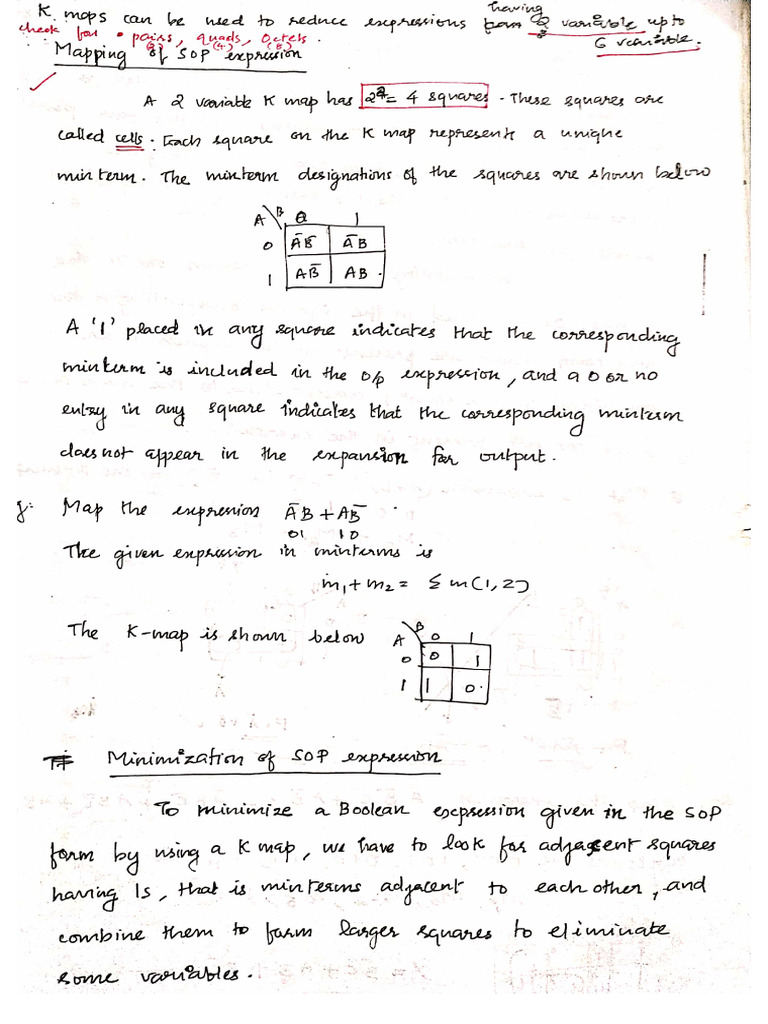 having
K. maps can be used to reduce expressions from 2 variable up to
check for • pairs, quads, octets. 6 variable.
(2) (4) (8)
Mapping of SOP expression
A 2 variable K map has 2² = 4 squares. These squares are
called cells. Each square on the K map represents a unique
minterm. The minterm designations of the squares are shown below
A B 0 1
0 A̅B̅ A̅B
1 AB̅ AB
A '1' placed in any square indicates that the corresponding
minterm is included in the o/p expression, and a 0 or no
entry in any square indicates that the corresponding minterm
does not appear in the expansion for output.
Map the expression A̅B + AB̅
01 10
The given expression in minterms is
m₁ + m₂ = Σ m(1, 2)
The K-map is shown below
A B 0 1
0 0 1
1 1 0
Minimization of SOP expression
To minimize a Boolean expsession given in the SOP
form by using a K map, we have to look for adjascent squares
having 1s, that is minterms adjacent to each other, and
combine them to form larger squares to eliminate
some variables.